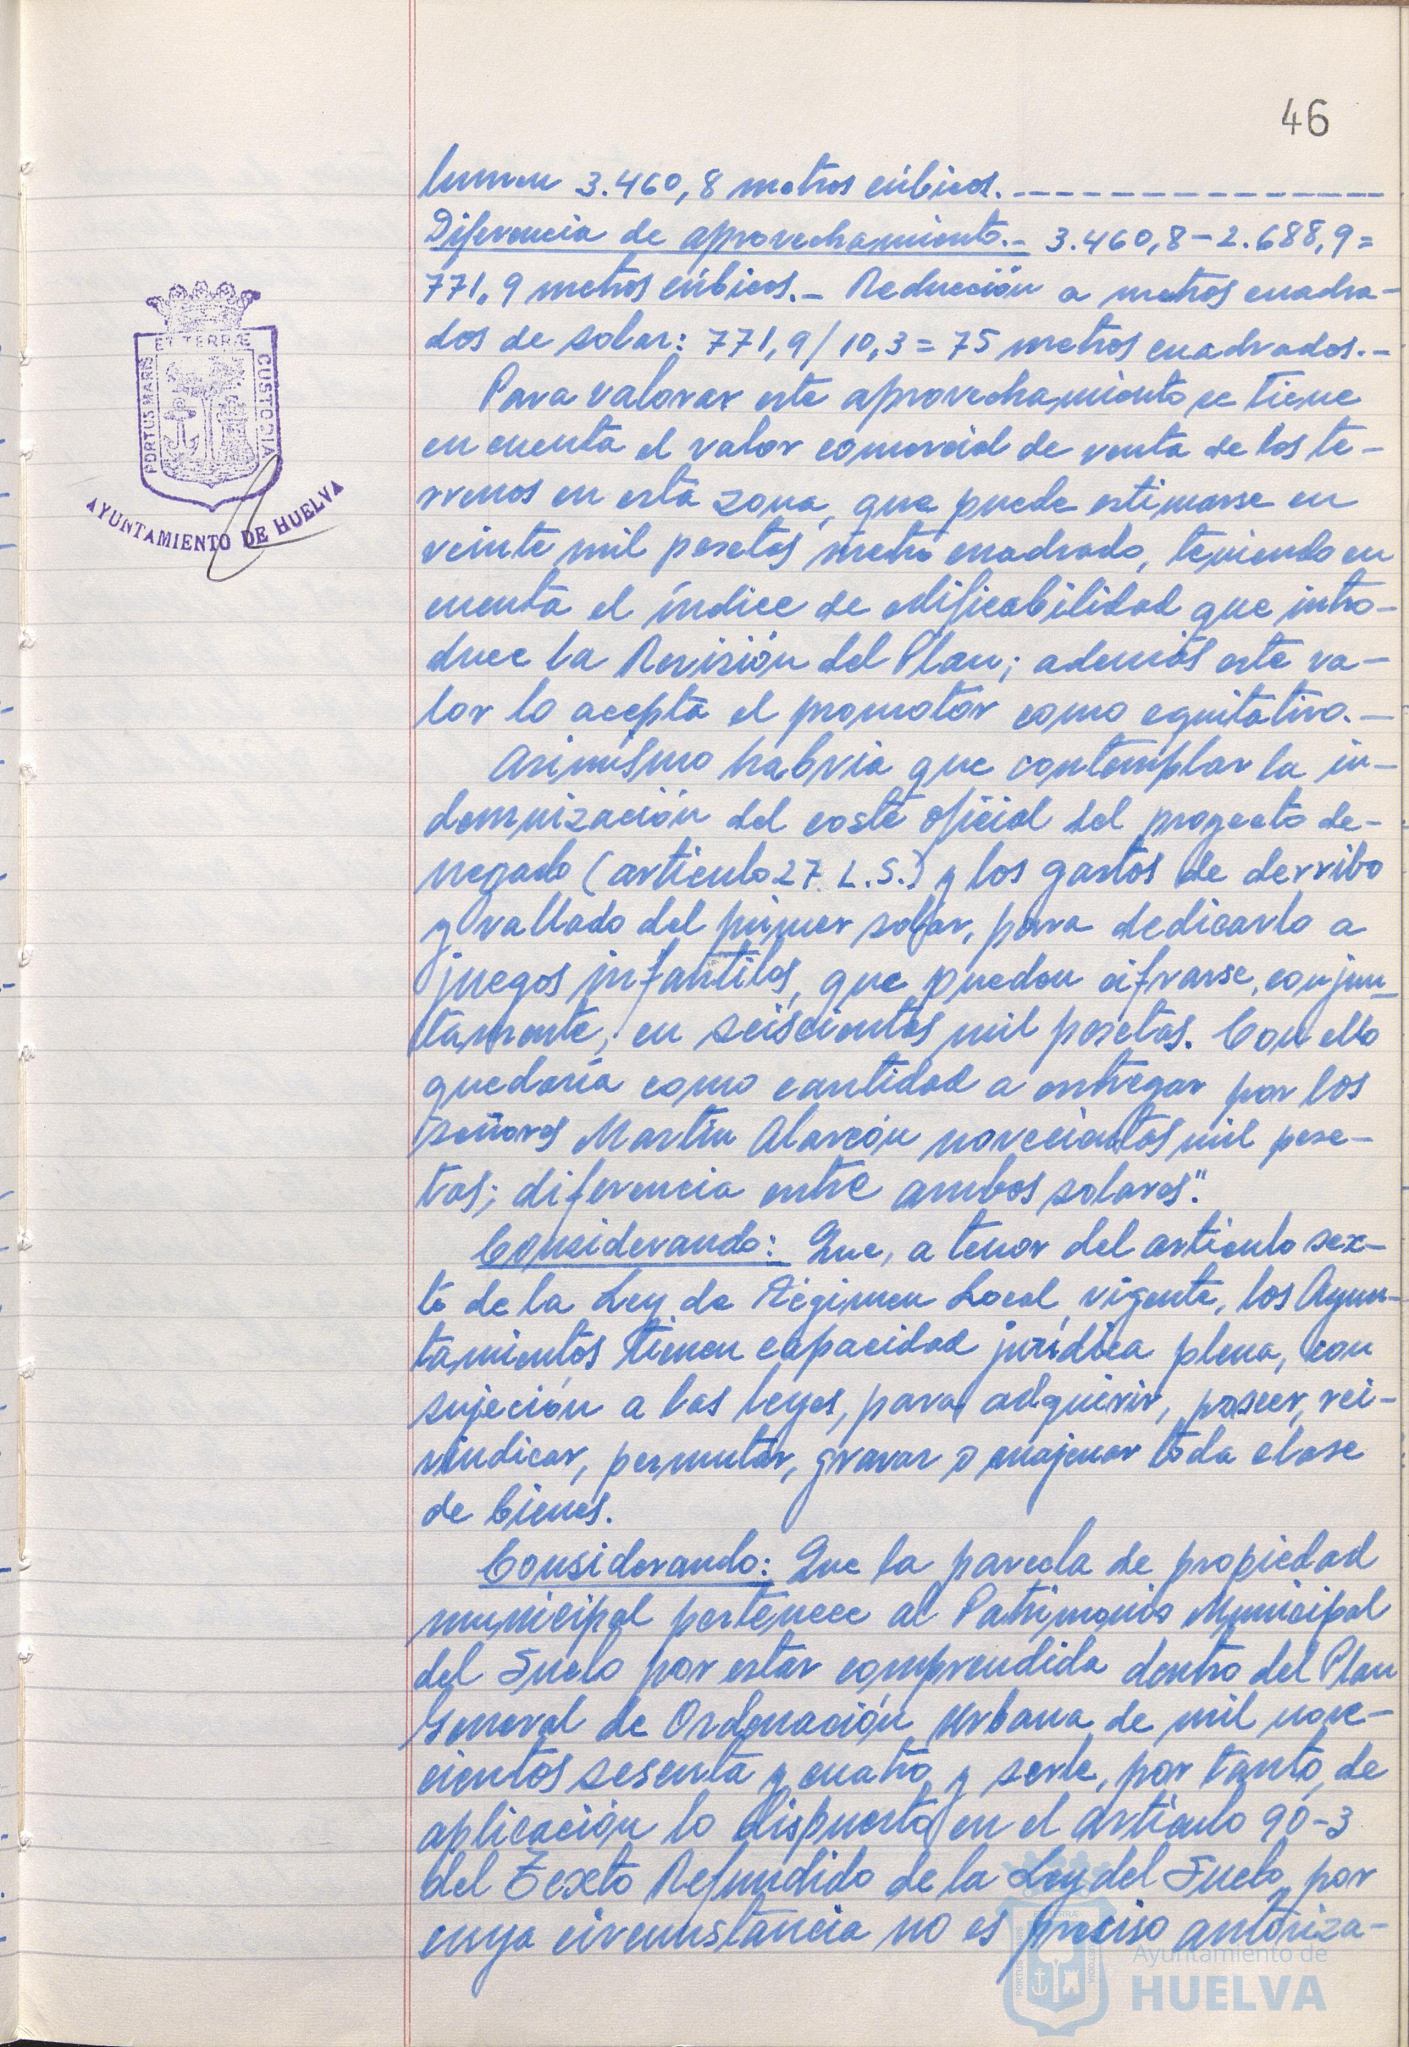 46
lumen 3.460,8 metros cúbicos. _ _ _ _ _ _ _ _ _ _ _ _ _ _
Diferencia de aprovechamiento.- 3.460,8-2.688,9=
771,9 metros cúbicos.- Reducción a metros cuadra-
dos de solar: 771,9/10,3=75 metros cuadrados.-
Para valorar este aprovechamiento se tiene
en cuenta el valor comercial de venta de los te-
rrenos en esta zona, que puede estimarse en
veinte mil pesetas metro cuadrado, teniendo en
cuenta el índice de edificabilidad que intro-
duce la Revisión del Plan; además este va-
lor lo acepta el promotor como equitativo.-
Asimismo habría que contemplar la in-
demnización del coste oficial del proyecto de-
negado (artículo 27 L.S.) y los gastos de derribo
y vallado del primer solar, para dedicarlo a
juegos infantiles, que pueden cifrarse, conjun-
tamente, en seiscientas mil pesetas. Con ello
quedaría como cantidad a entregar por los
señores Martín Alarcón novecientas mil pese-
tas; diferencia entre ambos solares".
Considerando: Que, a tenor del artículo sex-
to de la Ley de Régimen Local vigente, los Ayun-
tamientos tienen capacidad jurídica plena, con
sujeción a las leyes, para adquirir, poseer, rei-
vindicar, permutar, gravar o enajenar toda clase
de bienes.
Considerando: Que la parcela de propiedad
municipal pertenece al Patrimonio Municipal
del Suelo por estar comprendida dentro del Plan
General de Ordenación Urbana de mil nove-
cientos sesenta y cuatro y serle, por tanto, de
aplicación lo dispuesto en el artículo 90-3
del Texto Refundido de la Ley del Suelo, por
cuya circunstancia no es preciso autoriza-
PORTUS MARIS ET TERRÆ CUSTODIA
AYUNTAMIENTO DE HUELVA
Ayuntamiento de
HUELVA